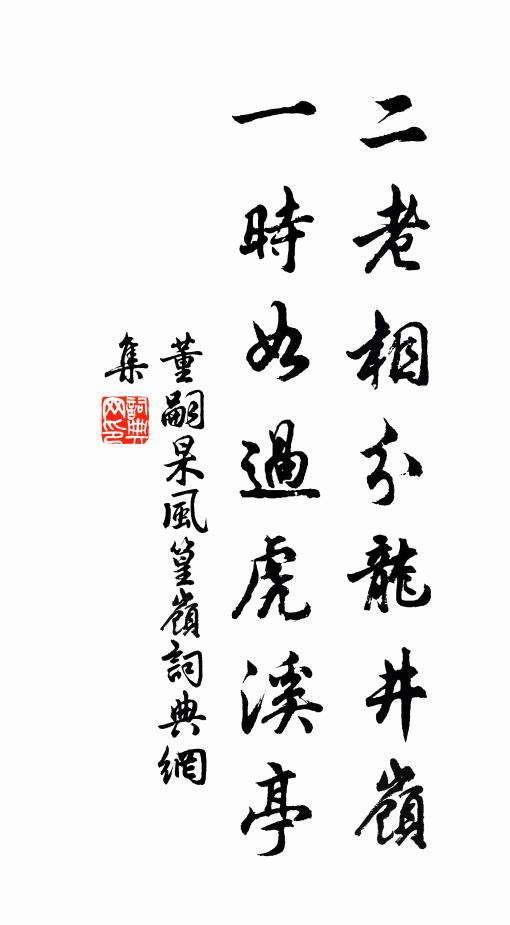 二老相分龍井嶺
一時如過虎溪亭
董嗣杲風篁嶺詞典網
集
詞典網印